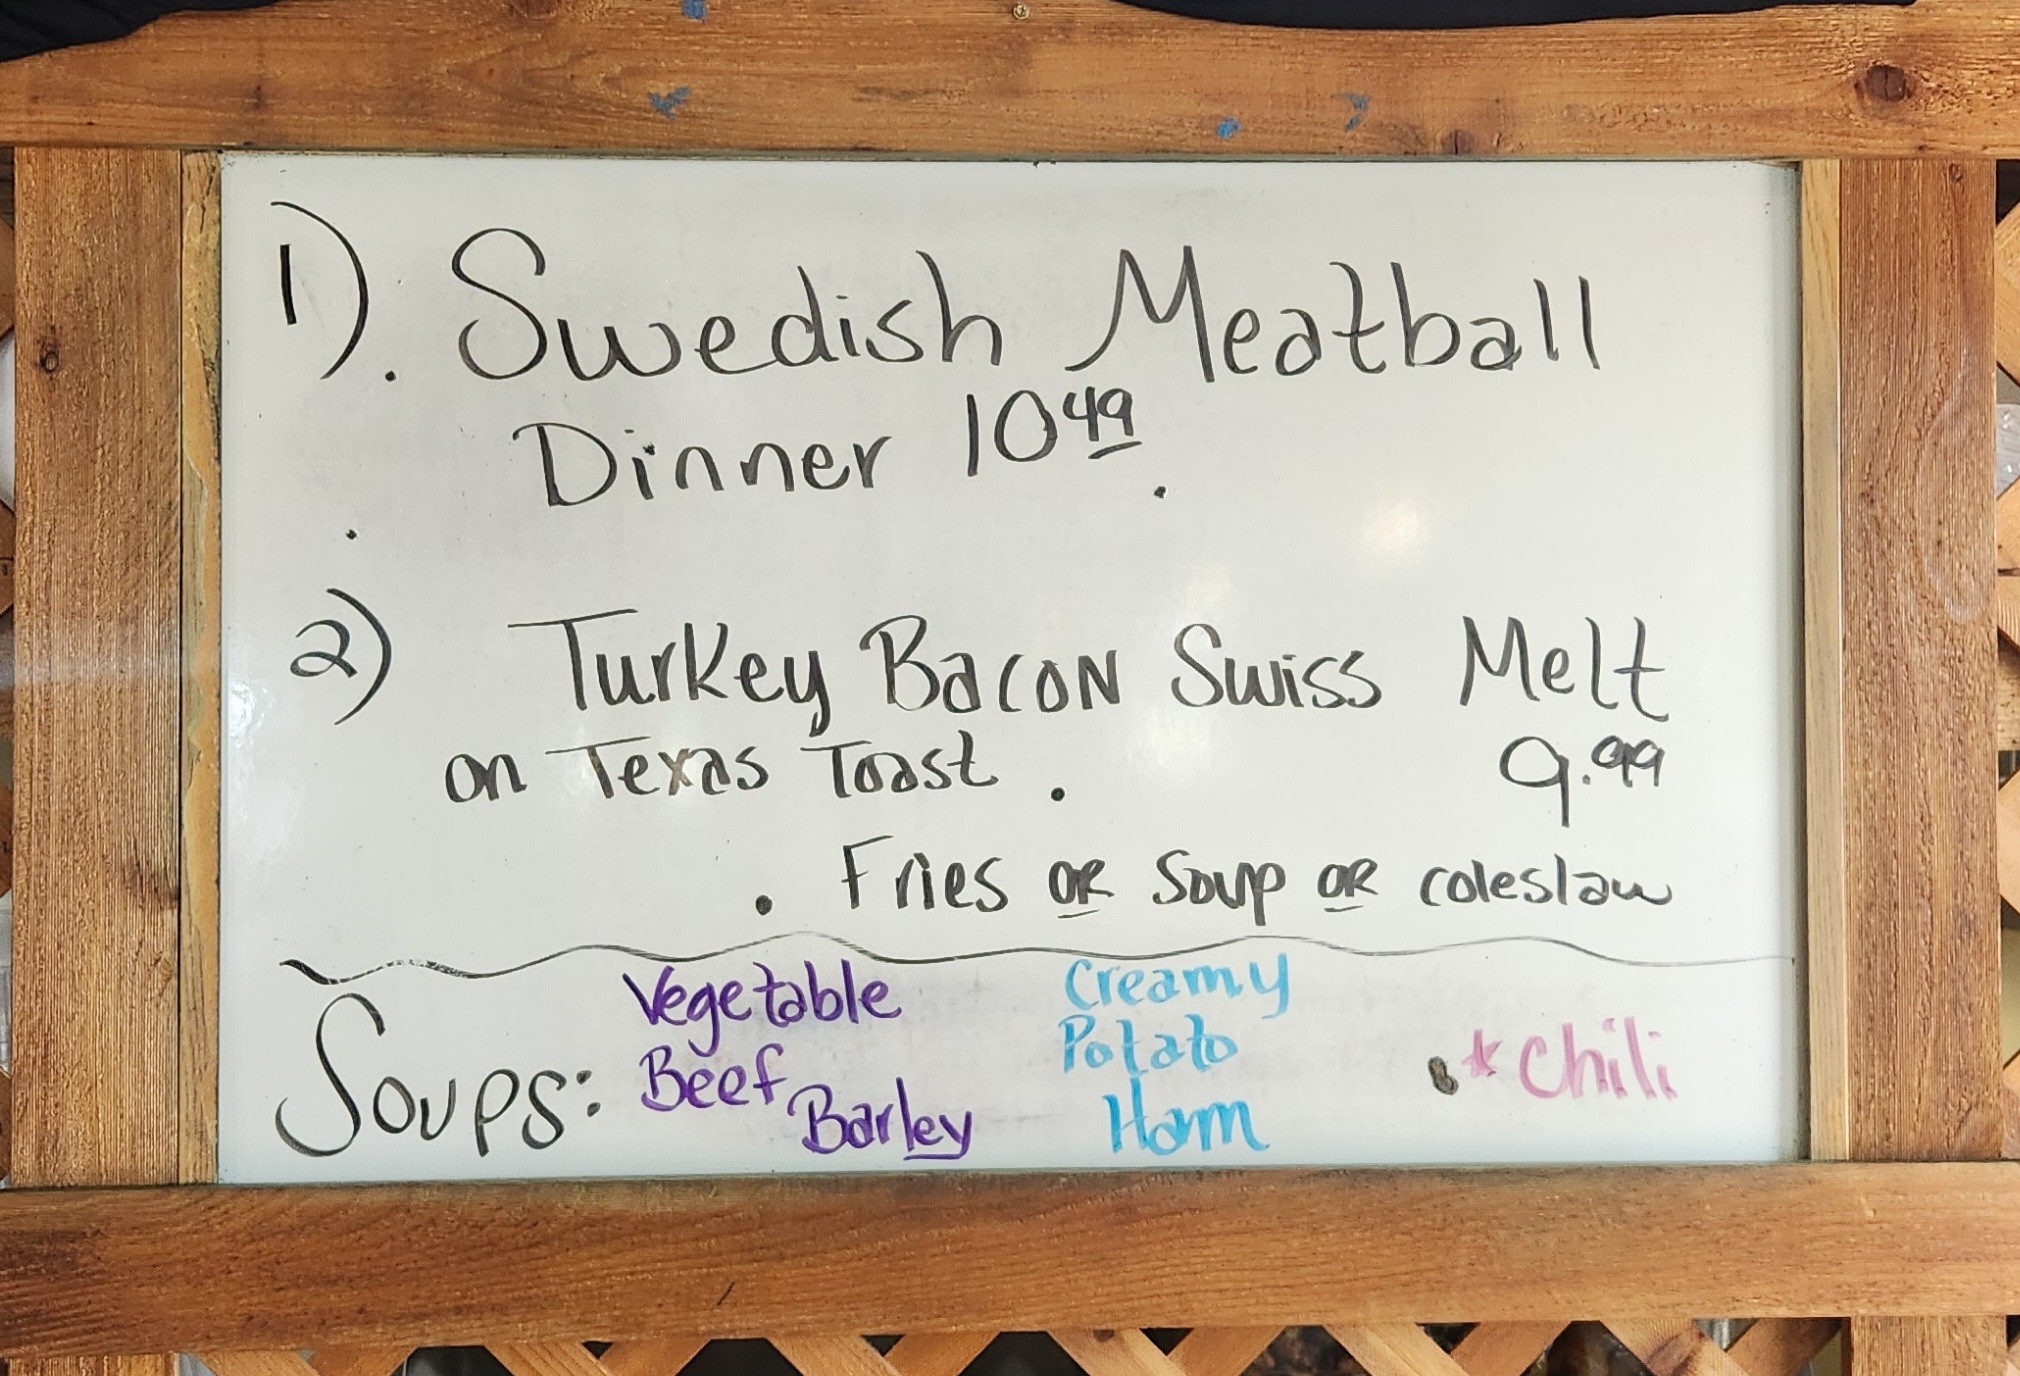 1). Swedish Meatball
Dinner 10 49
2) Turkey Bacon Swiss Melt
on Texas Toast. 9.99
. Fries OR Soup OR coleslaw
Soups:
Vegetable
Beef
Barley
Creamy
Potato
Ham
* Chili